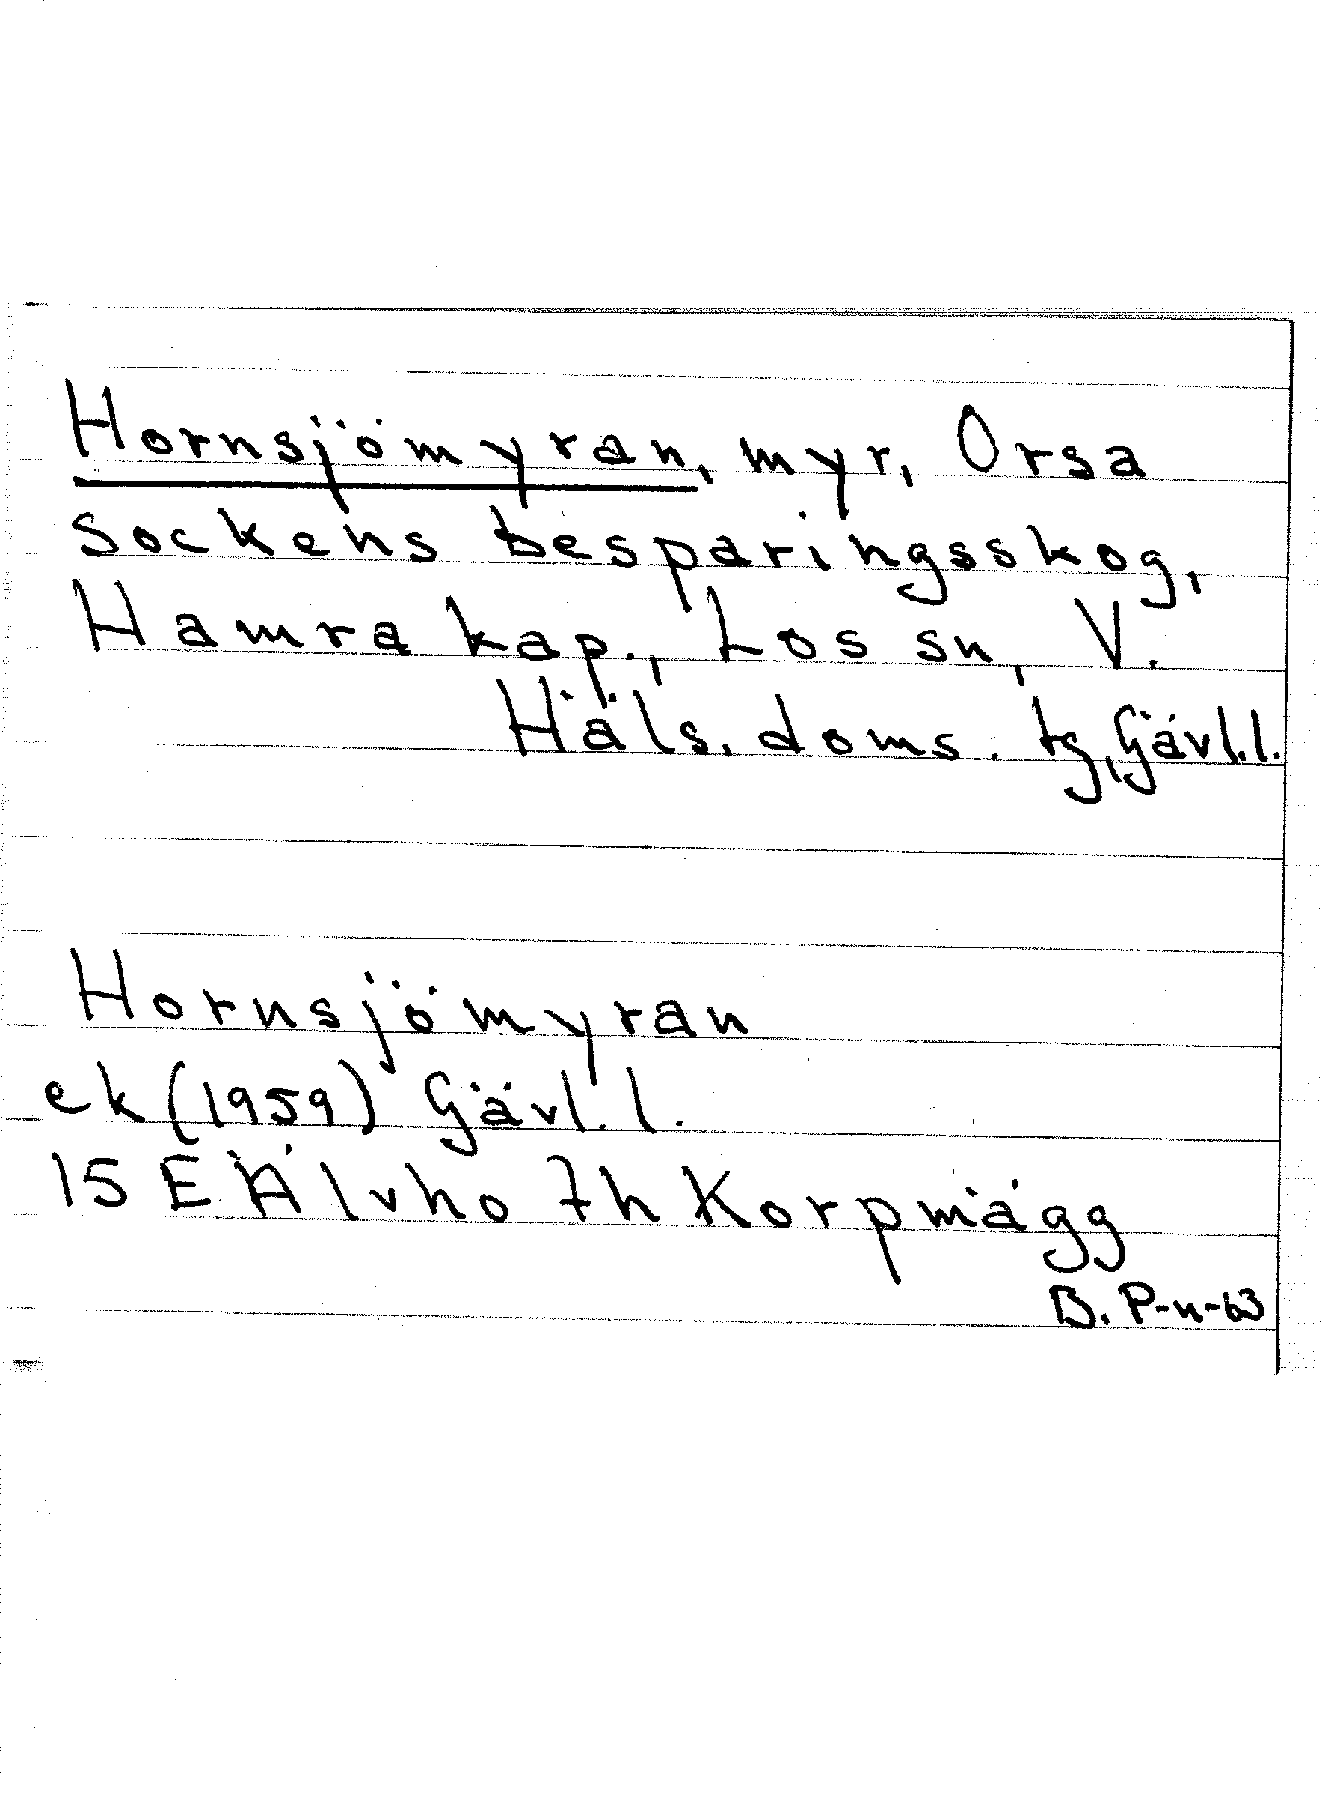 Hornsjömyran, myr, Orsa
Sockens besparingsskog,
Hamra kap., Los sn, V.
Häls. doms. tg, Gävl.l.
Hornsjömyran
ek (1959) Gävl.l.
15 E Älvho 7h Korpmägg
B. P-n-63